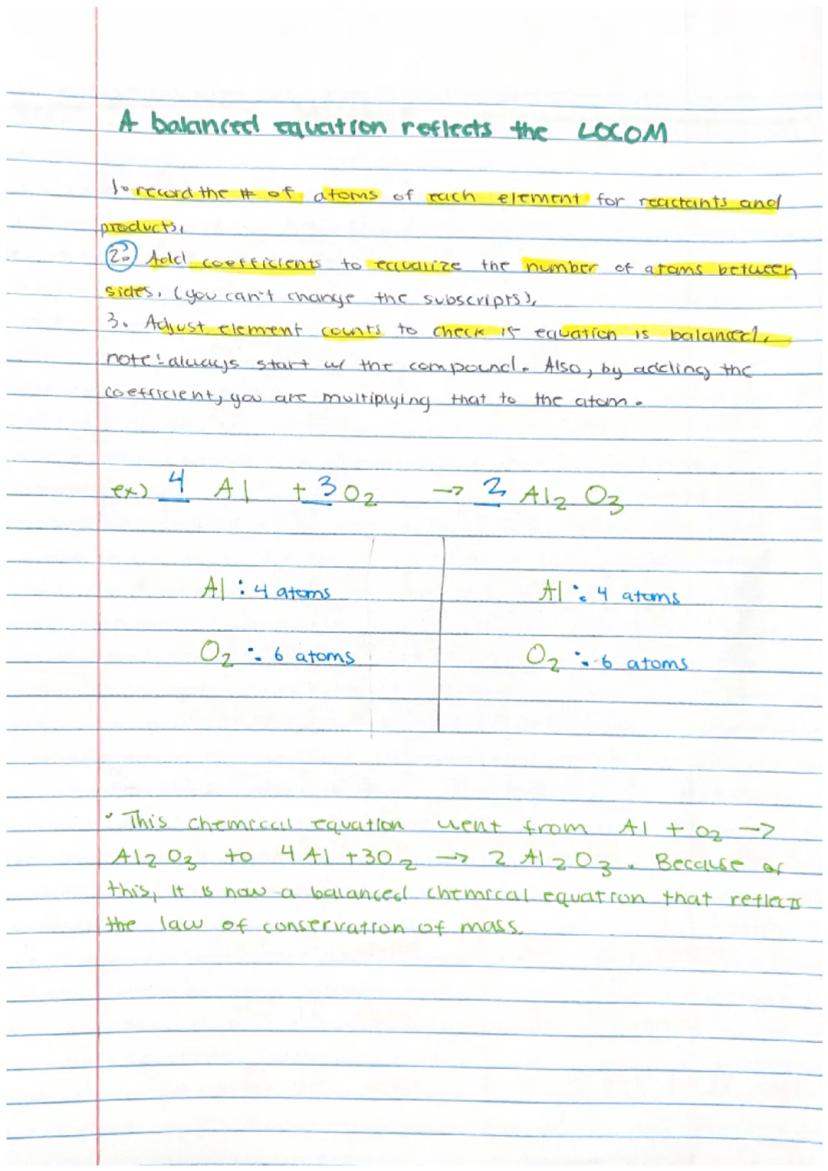 A balanced equation reflects the LOCOM
1. record the # of atoms of each element for reactants and
products.
2. Add coefficients to equalize the number of atoms between
sides. (you can't change the subscripts).
3. Adjust element counts to check if equation is balanced.
note: always start w/ the compound. Also, by adding the
coefficient, you are multiplying that to the atom.
ex) 4 Al + 3 O₂ → 2 Al₂ O₃
Al : 4 atoms Al : 4 atoms
O₂ : 6 atoms O₂ : 6 atoms
• This chemical equation went from Al + O₂ →
Al₂O₃ to 4Al + 3O₂ → 2 Al₂O₃. Because of
this, it is now a balanced chemical equation that reflects
the law of conservation of mass.